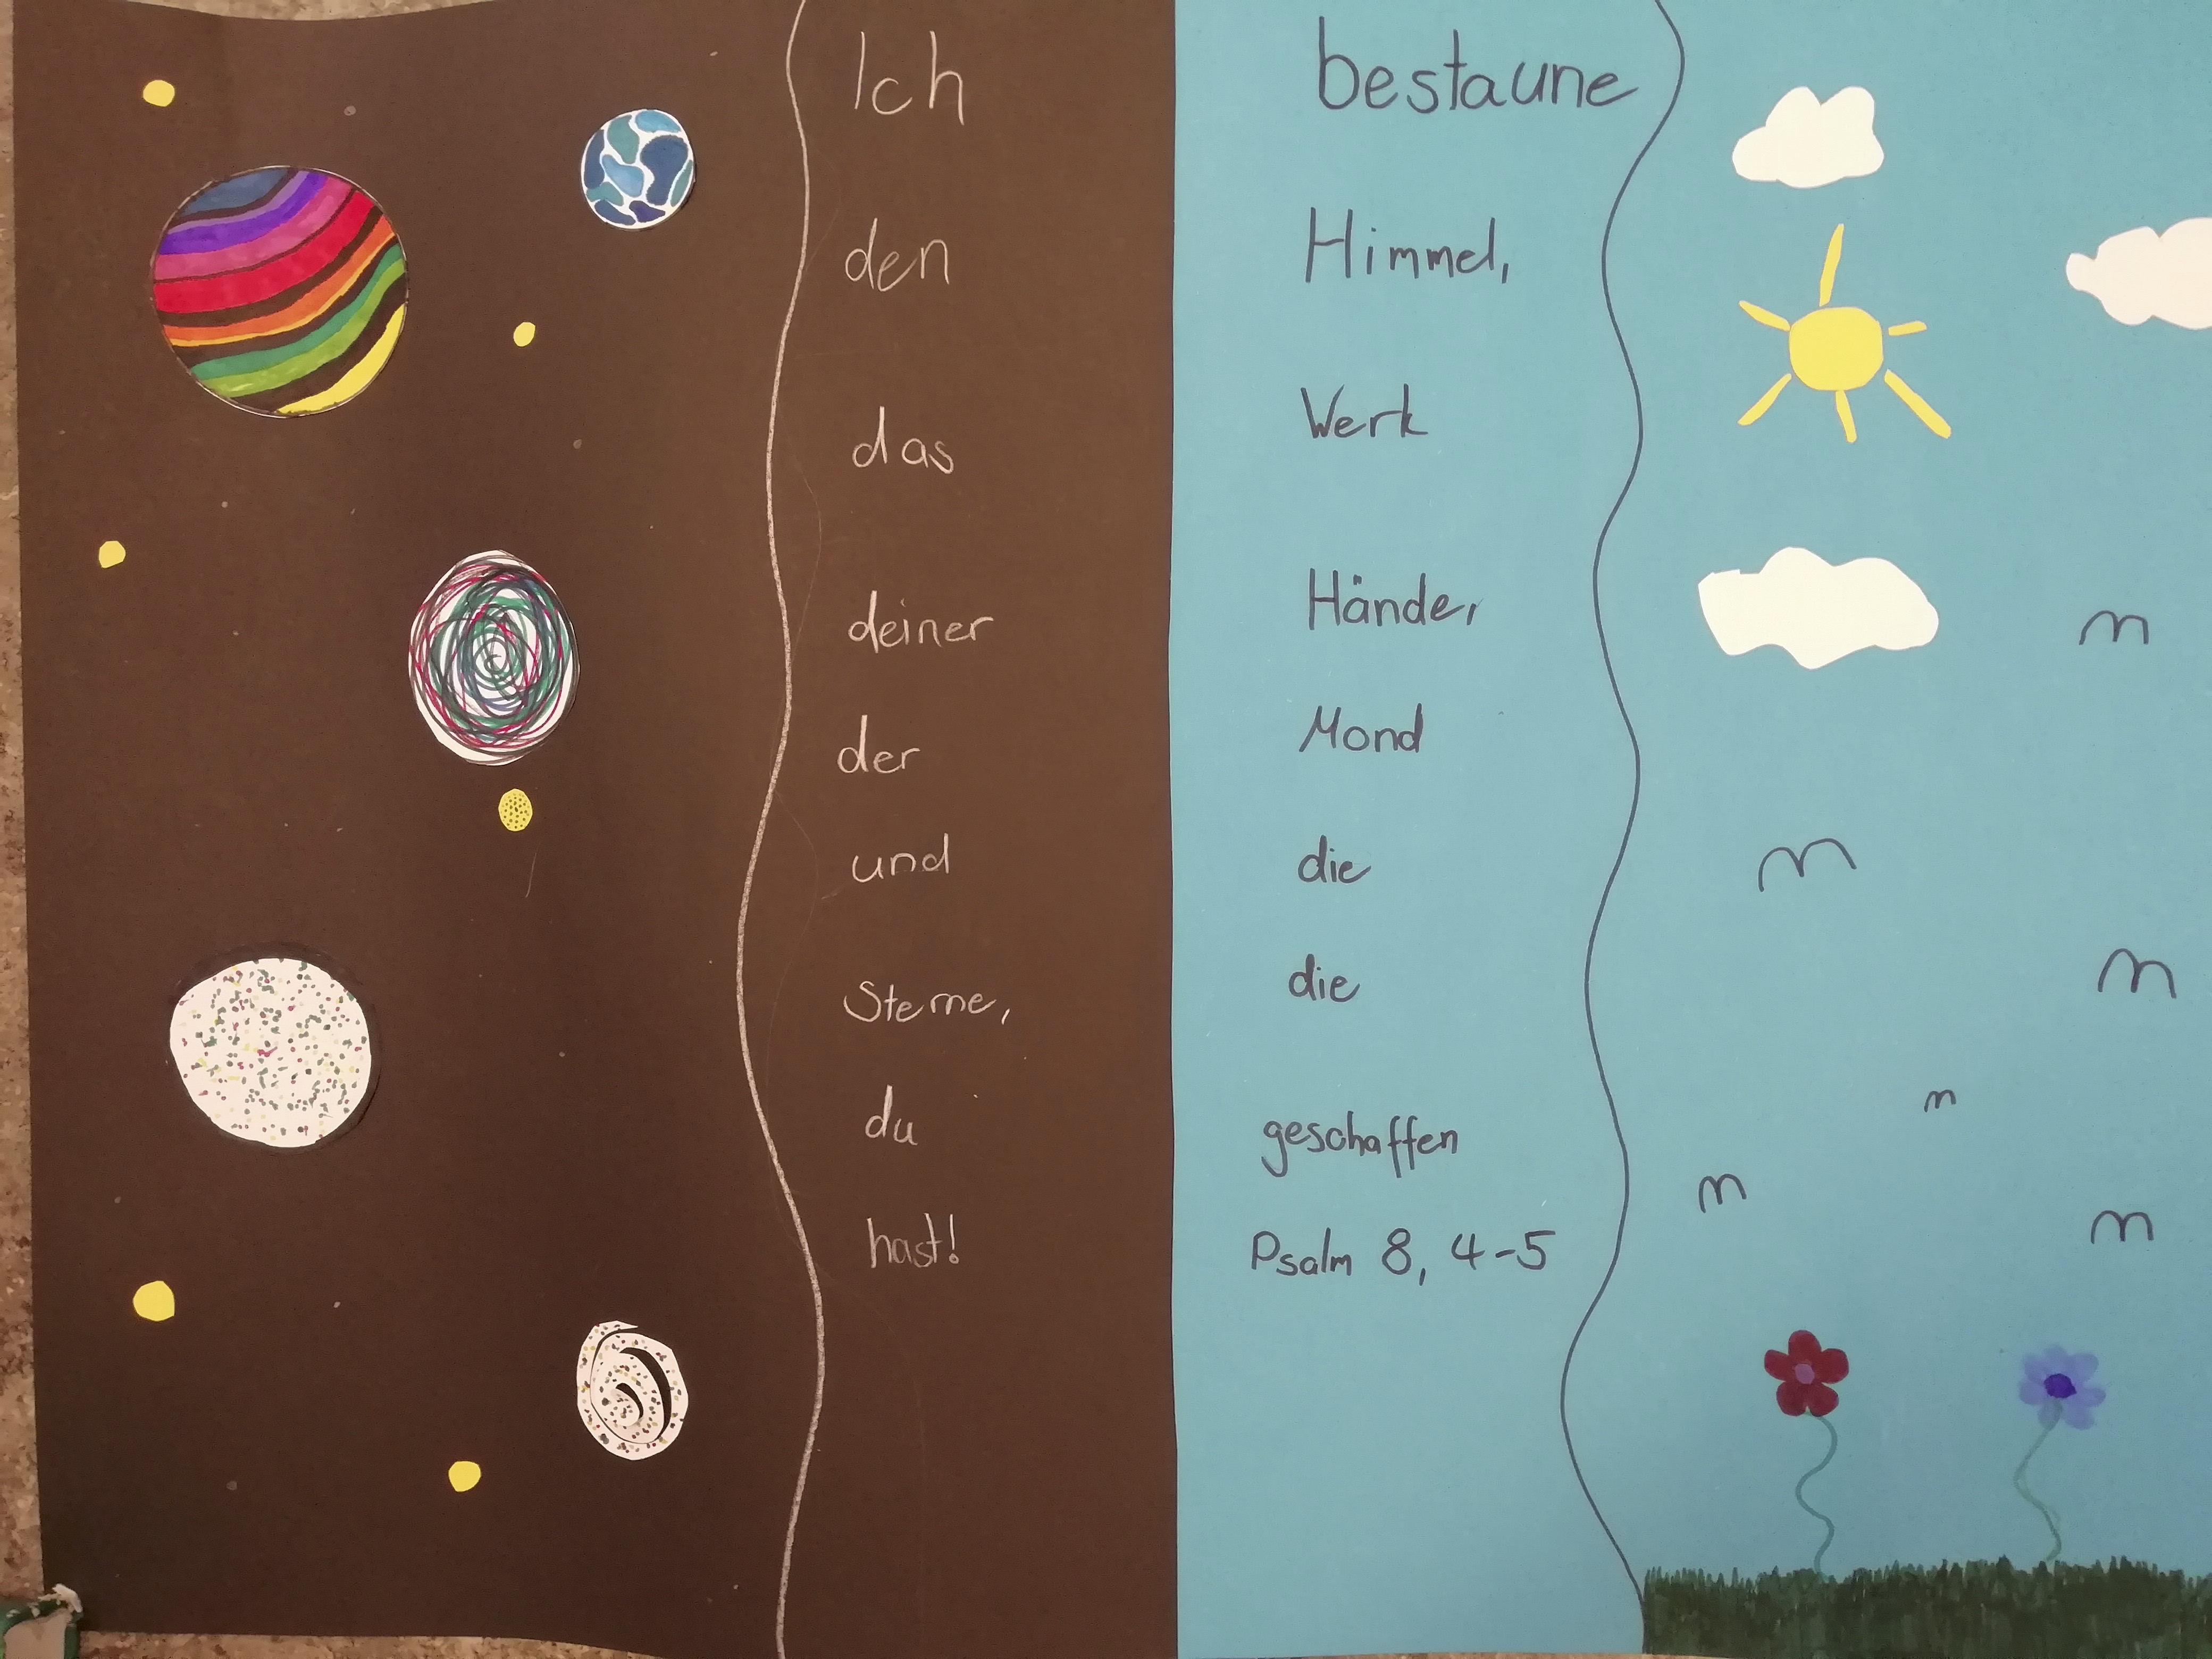 Ich bestaune
den Himmel,
das Werk
deiner Hände,
der Mond
und die
Sterne, die
du geschaffen
hast! Psalm 8, 4-5